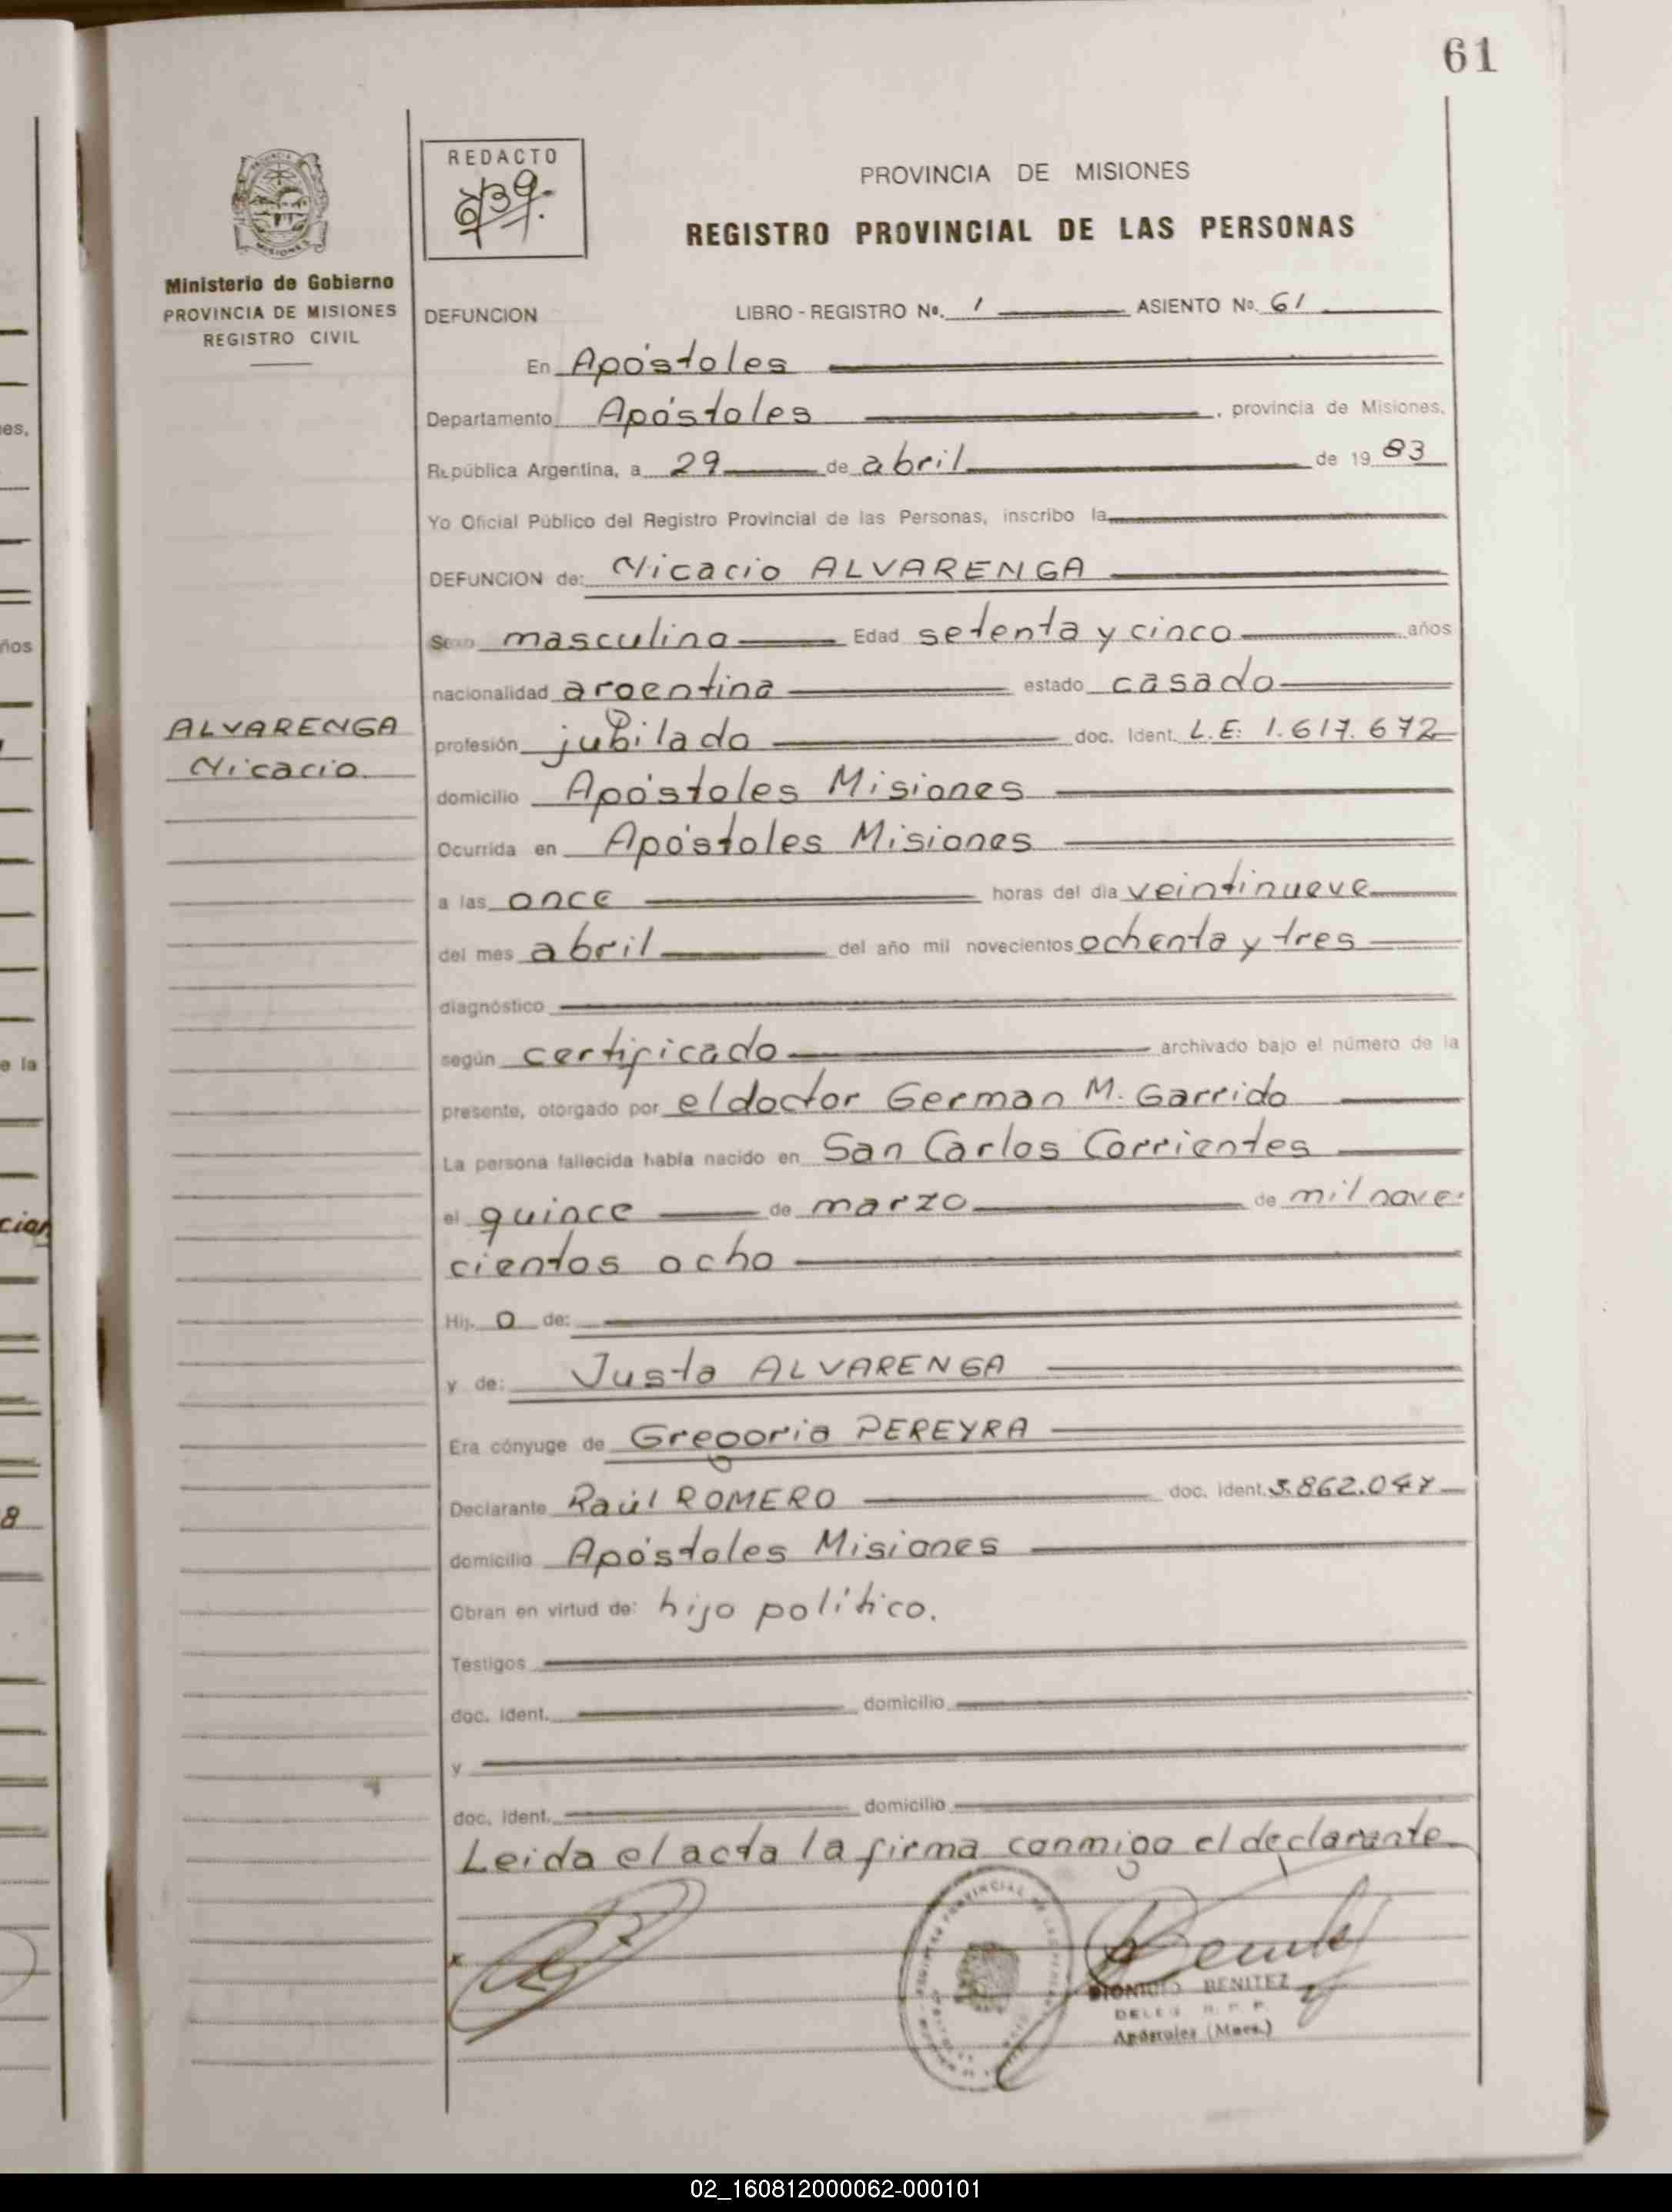 61
REDACTO
PROVINCIA DE MISIONES
REGISTRO PROVINCIAL DE LAS PERSONAS
Ministerio de Gobierno
PROVINCIA DE MISIONES
REGISTRO CIVIL
DEFUNCION LIBRO - REGISTRO Nº. 1 ASIENTO Nº. 61
En Apóstoles
Departamento Apóstoles , provincia de Misiones,
República Argentina, a 29 de abril de 19 83
Yo Oficial Público del Registro Provincial de las Personas, inscribo la
DEFUNCION de: Nicacio ALVARENGA
Sexo masculino Edad setenta y cinco años
nacionalidad argentina estado casado
ALVARENGA
Nicacio
profesión jubilado doc. Ident. L.E: 1.617.672
domicilio Apóstoles Misiones
Ocurrida en Apóstoles Misiones
a las once horas del día veintinueve
del mes abril del año mil novecientos ochenta y tres
diagnóstico
según certificado archivado bajo el número de la
presente, otorgado por el doctor German M. Garrido
La persona fallecida había nacido en San Carlos Corrientes
el quince de marzo de mil nove-
cientos ocho
Hij o de:
y de: Justa ALVARENGA
Era cónyuge de Gregoria PEREYRA
Declarante Raúl ROMERO doc. ident. 5.862.047
domicilio Apóstoles Misiones
Obran en virtud de: hijo político.
Testigos
doc. ident. domicilio
y
doc. ident. domicilio
Leida el acta la firma conmigo el declarante
DIONICIO BENITEZ
DELEG R. P. P.
Apóstoles (Mnes.)
02_160812000062-000101